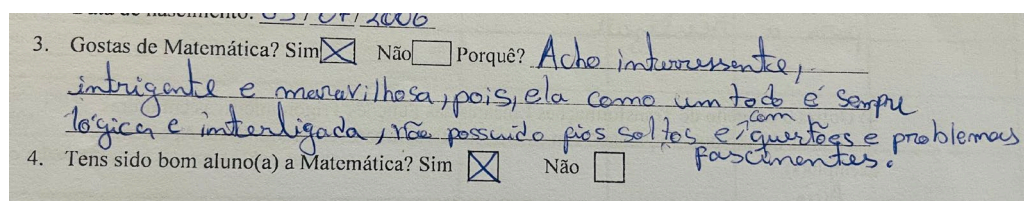 Data de nascimento: 03/07/2006
3. Gostas de Matemática? Sim ☒ Não ☐ Porquê? Acho interressente,
intrigante e maravilhosa, pois, ela como um todo é sempre
lógica e interligada, não possuido fios soltos e com questões e problemas
fascinentes.
4. Tens sido bom aluno(a) a Matemática? Sim ☒ Não ☐